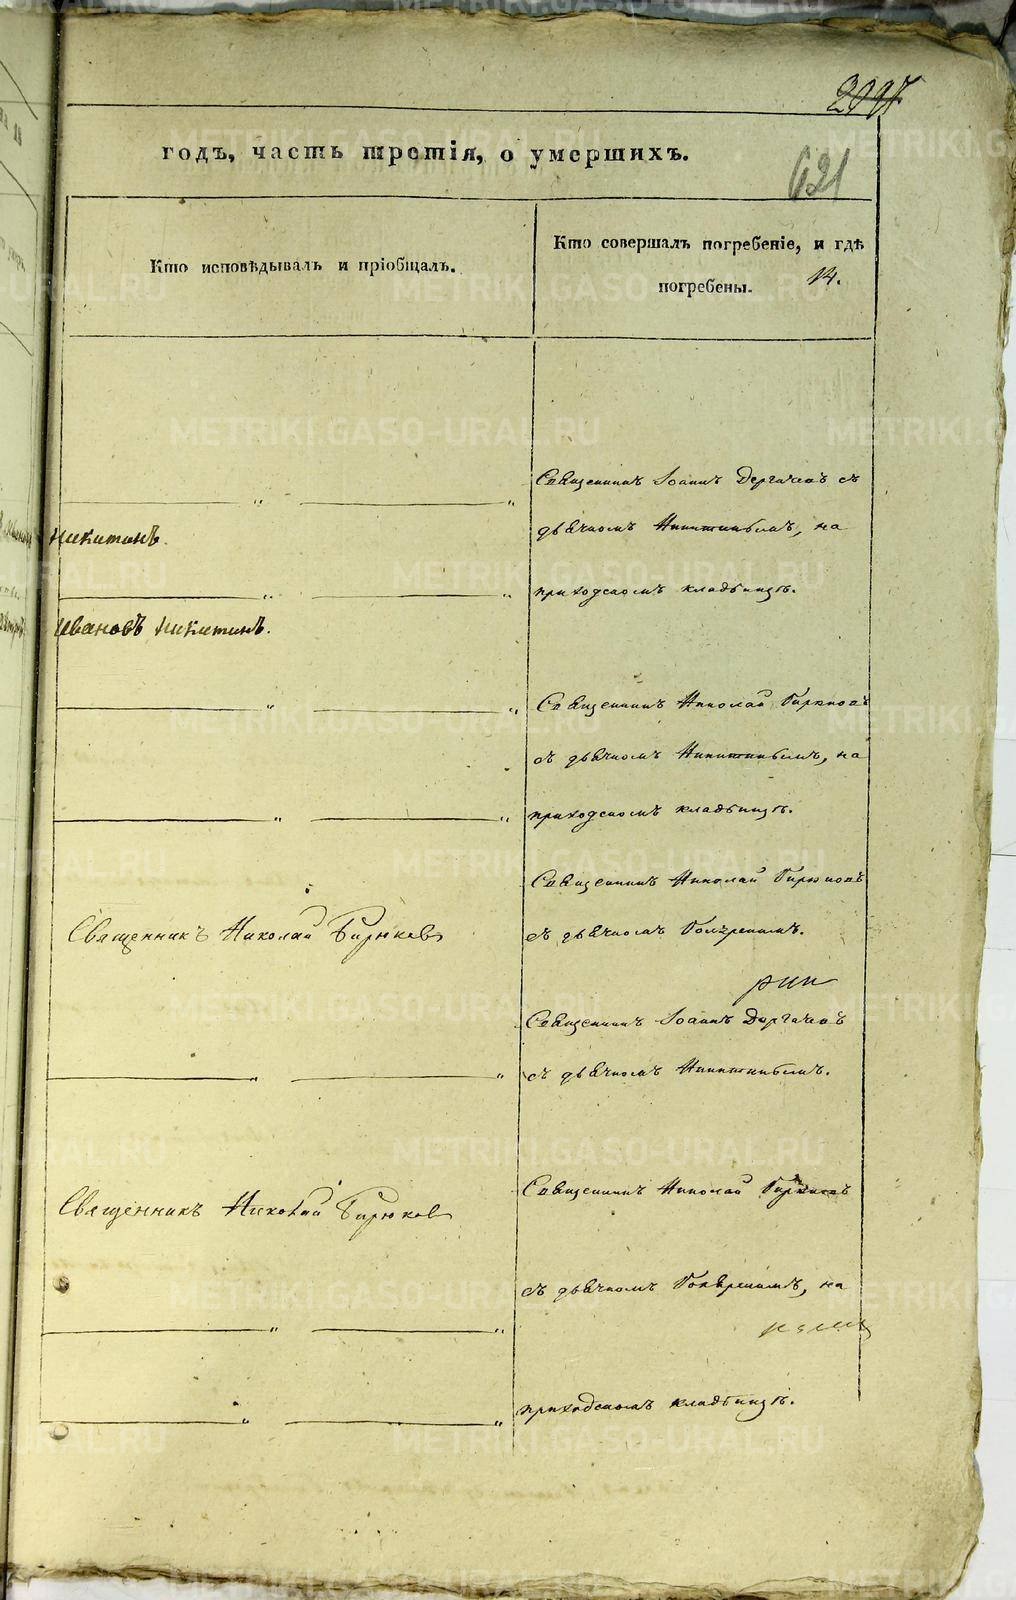 годъ, часть третія, о умершихъ.
621
Кто исповѣдывалъ и пріобщалъ.
Кто совершалъ погребеніе, и гдѣ
погребены.
14.
Священникъ Іоаннъ Дергачевъ съ
Никитинъ.
дьячкомъ Никитинымъ, на
приходскомъ кладбищѣ.
Ивановъ Никитинъ.
Священникъ Николай Бирюковъ
съ дьячкомъ Никитинымъ, на
приходскомъ кладбищѣ.
Священникъ Николай Бирюковъ
Священникъ Николай Бирюковъ
съ дьячкомъ
Священникъ Іоаннъ Дергачевъ
съ дьячкомъ Никитинымъ.
Священникъ Николай Бирюковъ
Священникъ Николай Бирюковъ
съ дьячкомъ на
приходскомъ кладбищѣ.
METRIKI.GASO-URAL.RU